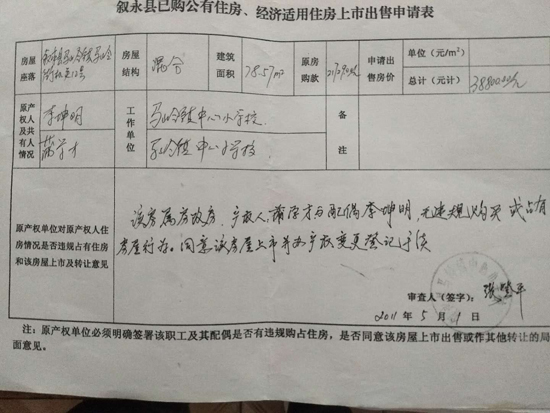 叙永县已购公有住房、经济适用住房上市出售申请表
房屋座落
房屋结构 混合
建筑面积 78.57m²
原房购款
申请出售房价
单位（元/m²）
总计（元计） 38800元
原产权人及共有人情况
李坤明
工作单位
马岭镇中心小学校
马岭镇中心小学校
备注
原产权单位对原产权人住房情况是否违规占有住房和该房屋上市及转让意见
该房属房改房，产权人 与配偶李坤明，无违规购买或占有
房屋行为。同意该房屋上市并办产权变更登记手续
审查人（签字）：
2011 年 5 月 1 日
注：原产权单位必须明确签署该职工及其配偶是否有违规购占住房，是否同意该房屋上市出售或作其他转让的局
面意见。